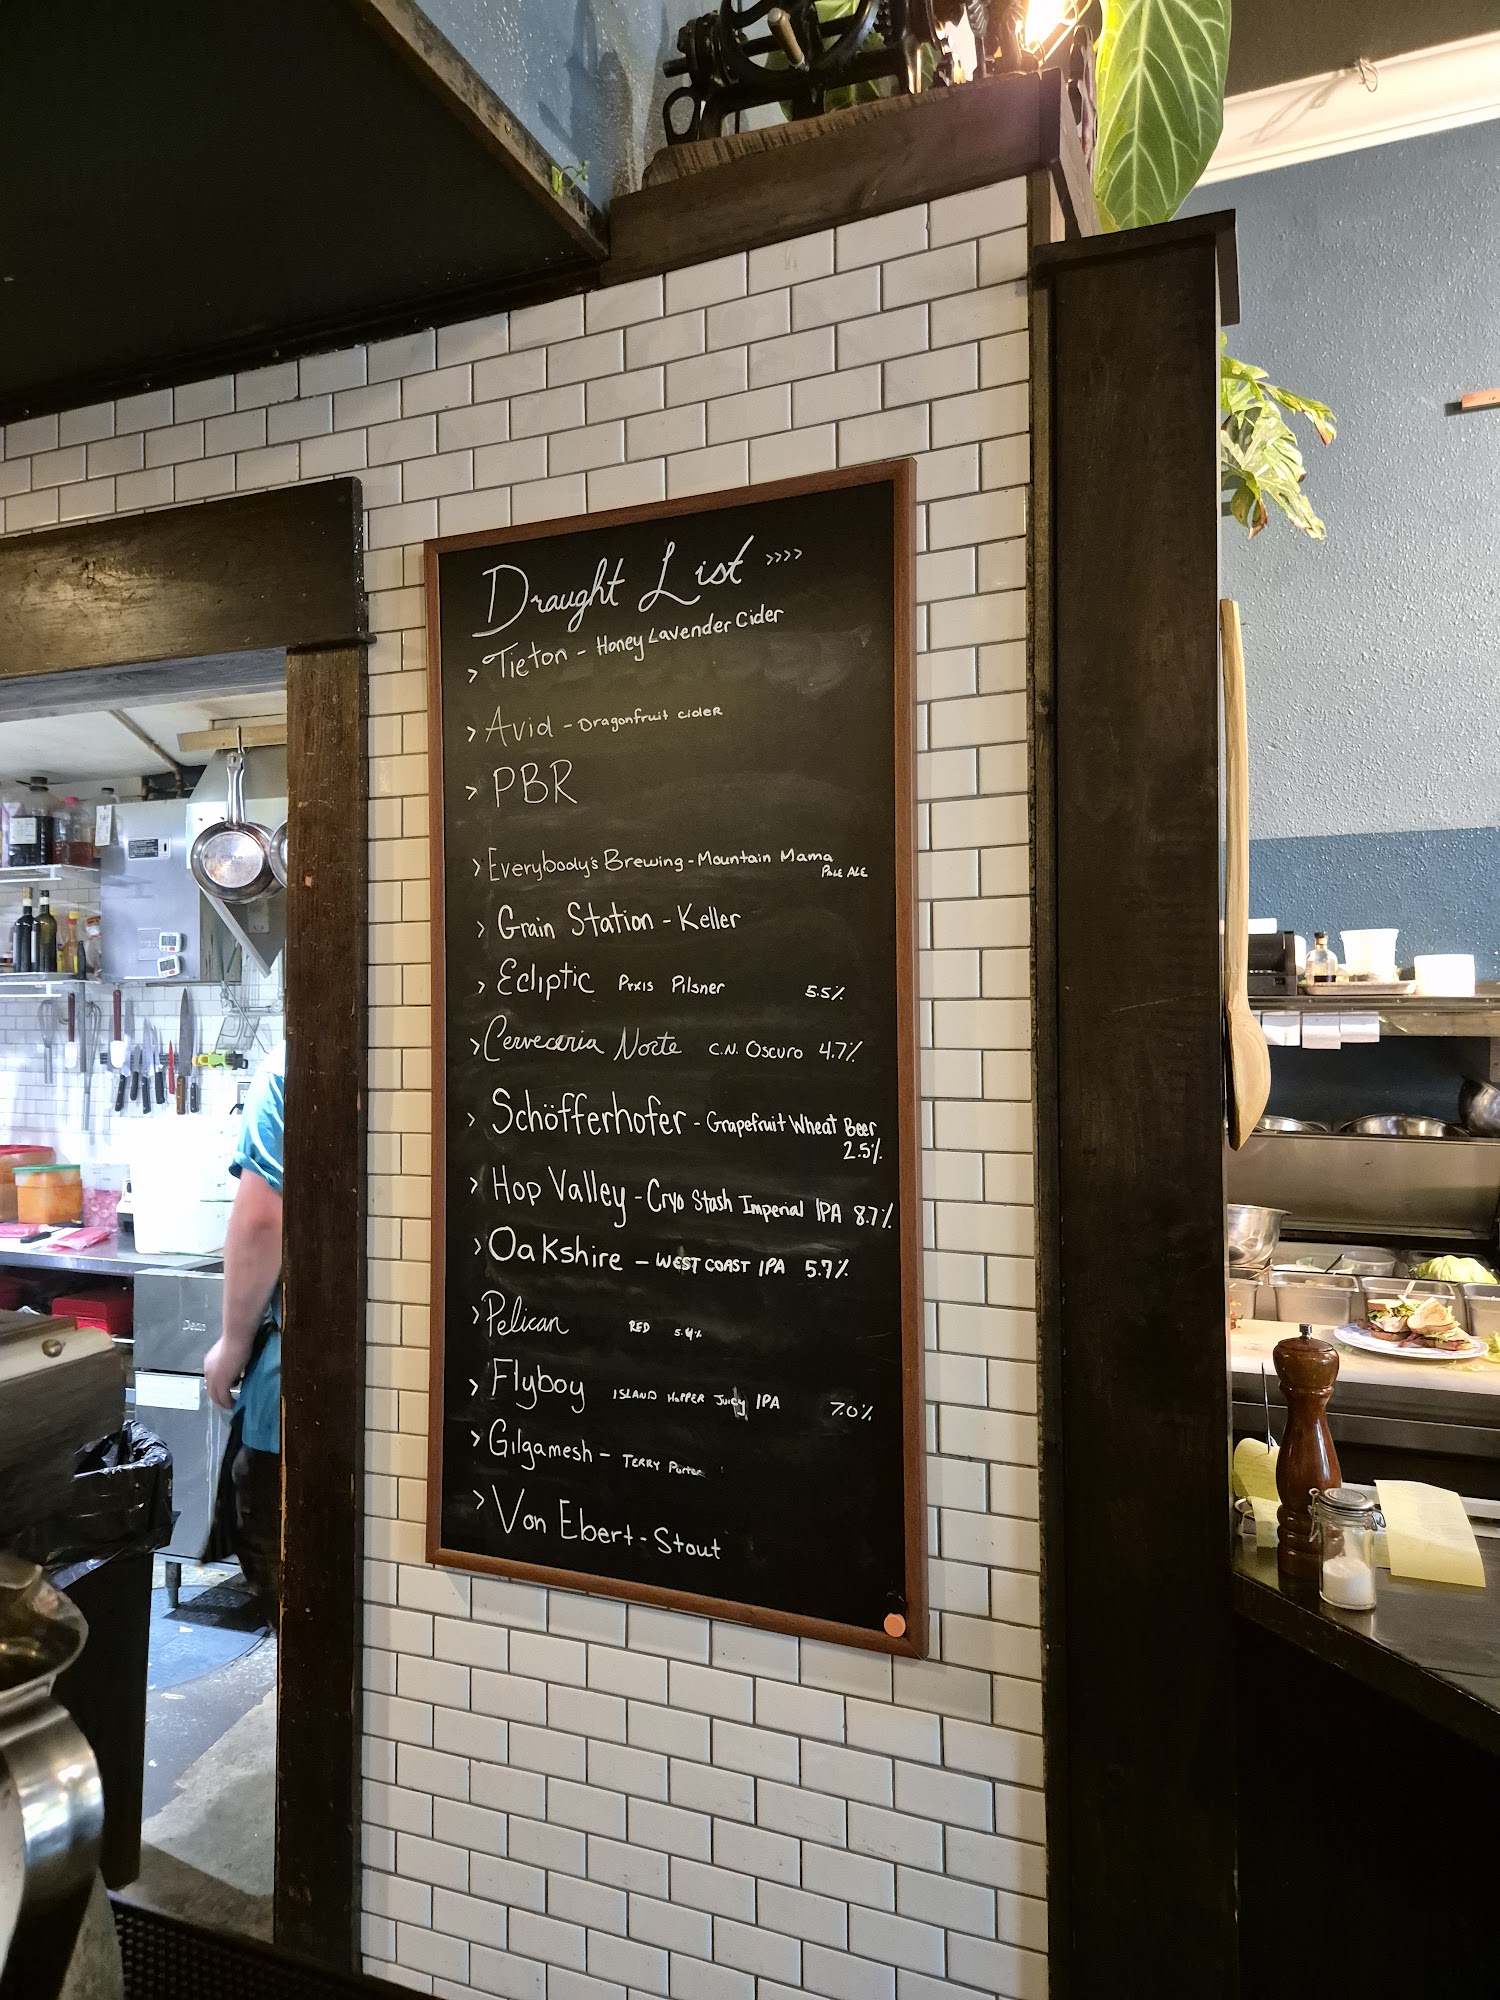 Draught List >>>>
> Tieton - Honey Lavender Cider
> Avid - Dragonfruit cider
> PBR
> Everybody's Brewing - Mountain Mama
Pale Ale
> Grain Station - Keller
> Ecliptic Pyxis Pilsner 5.5%
> Cerveceria Norte C.N. Oscuro 4.7%
> Schöfferhofer - Grapefruit Wheat Beer
2.5%
> Hop Valley - Cryo Stash Imperial IPA 8.7%
> Oakshire - WEST COAST IPA 5.7%
> Pelican RED 5.4%
> Flyboy ISLAND HOPPER Juicy IPA 7.0%
> Gilgamesh - TERRY Porter
> Von Ebert - Stout